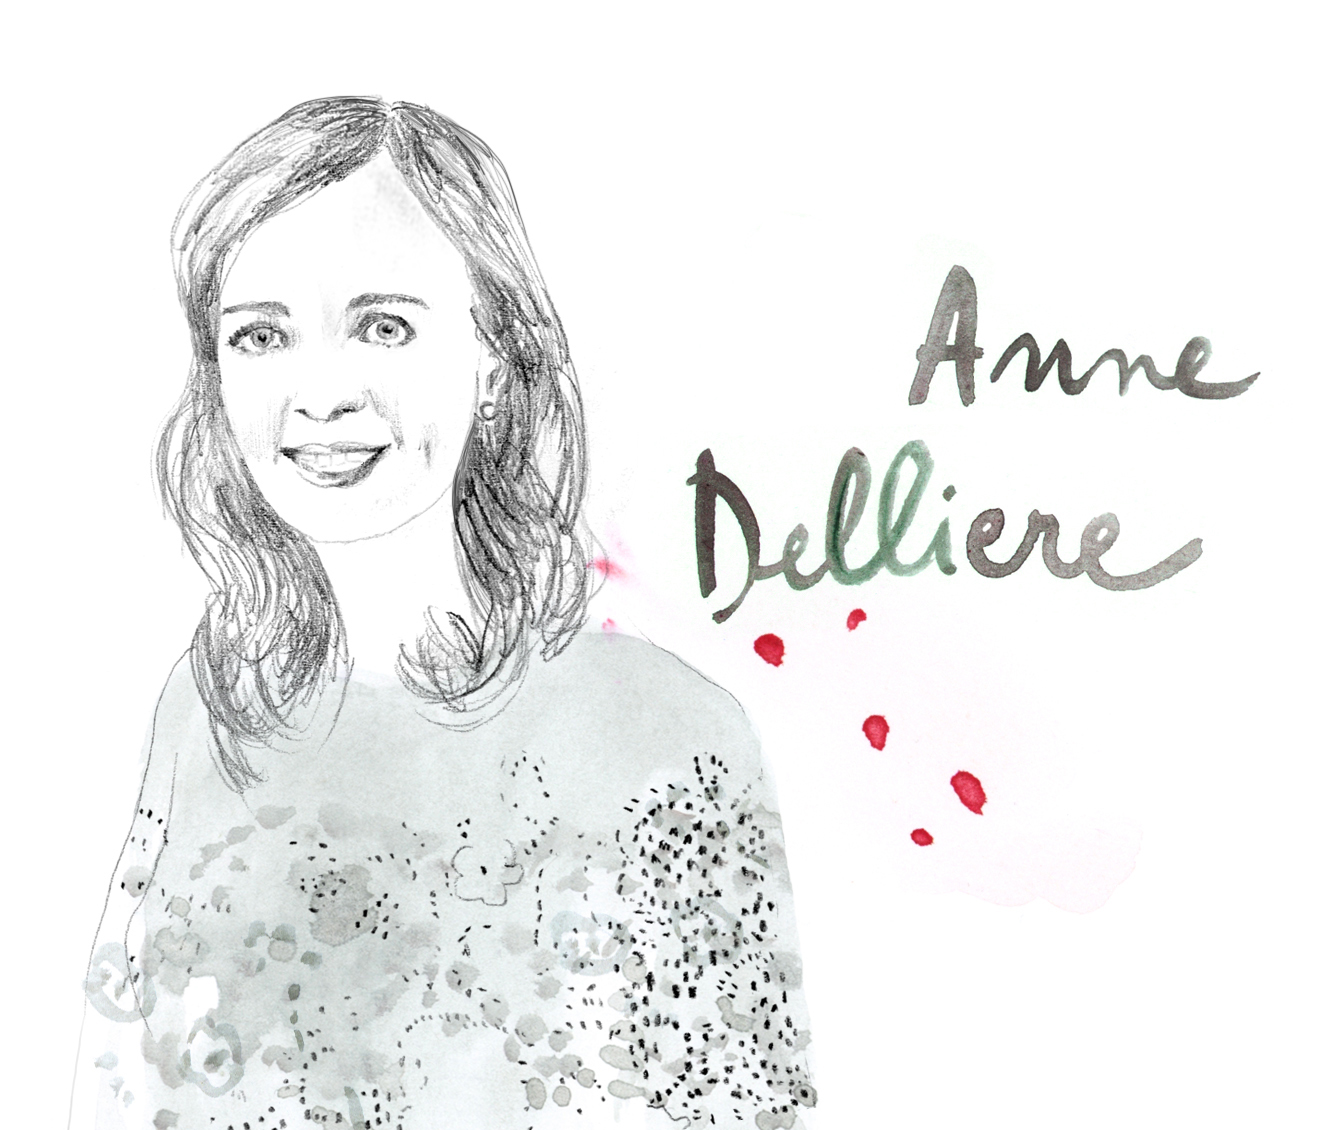 Anne
Delliere